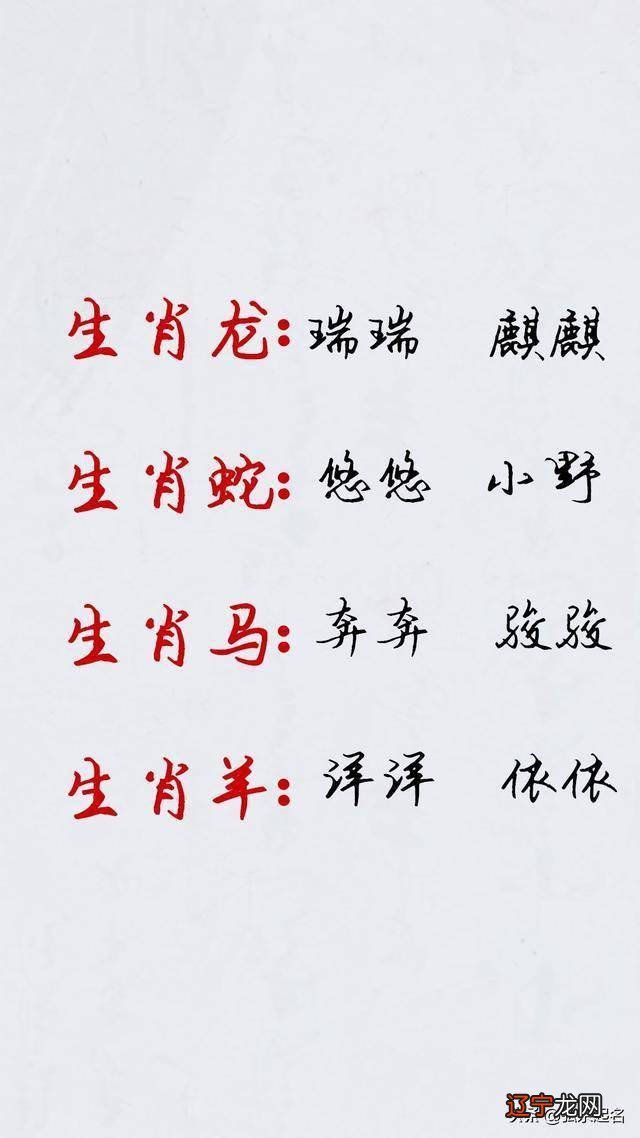 生肖龙:瑞瑞 麒麒
生肖蛇:悠悠 小野
生肖马:奔奔 骏骏
生肖羊:洋洋 依依
辽宁龙网
起名